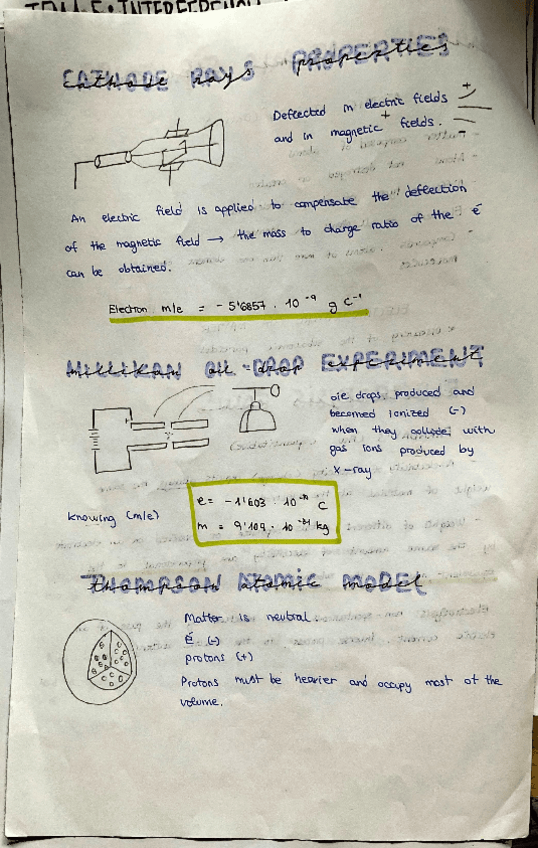 CATHODE RAYS PROPERTIES
Cathode rays properties
Deflected in electric fields +
and in magnetic + fields. -
An electric field is applied to compensate the deflection
of the magnetic field → the mass to charge ratio of the e⁻
can be obtained.
Electron m/e = - 5'6857 · 10⁻⁹ g C⁻¹
MILLIKAN OIL-DROP EXPERIMENT
Millikan oil-drop experiment
oil drops produced and
becomed ionized (-)
when they collide with
gas ions produced by
x-ray
Knowing (m/e)
e = - 1'603 · 10⁻¹⁹ C
m = 9'109 · 10⁻³¹ kg
THOMPSON ATOMIC MODEL
Thompson atomic model
Matter is neutral
e⁻ (-)
protons (+)
Protons must be heavier and occupy most of the
volume.